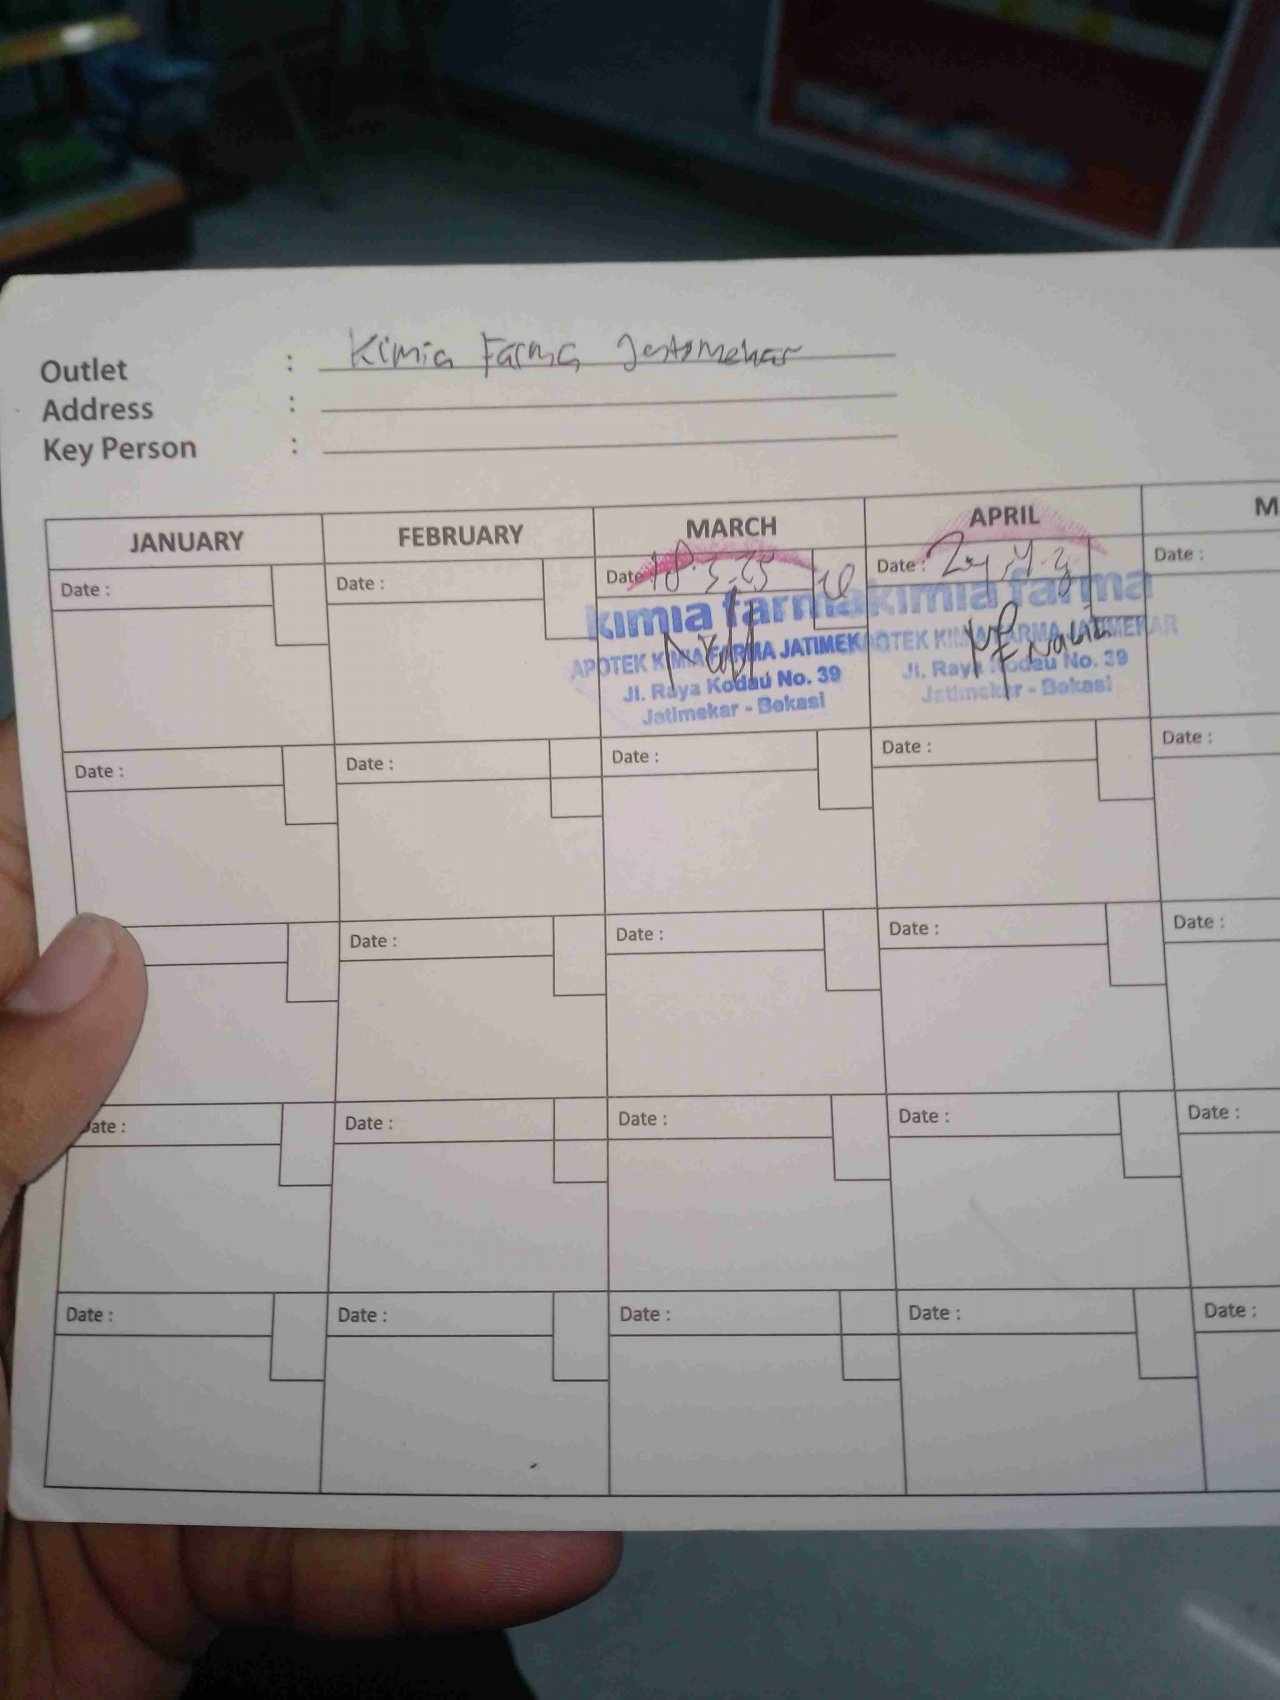 Outlet : Kimia Farma Jatimekar
Address :
Key Person :
JANUARY FEBRUARY MARCH APRIL M
Date : Date : Date 18.3.25 Date : Date :
kimia farma kimia farma
APOTEK KIMIA FARMA JATIMEKA OTEK KIMIA FARMA JATIMEKAR
Jl. Raya Kodau No. 39 Jl. Raya Kodau No. 39
Jatimekar - Bekasi Jatimekar - Bekasi
Date : Date : Date : Date : Date :
Date : Date : Date : Date :
Date : Date : Date : Date : Date :
Date : Date : Date : Date : Date :